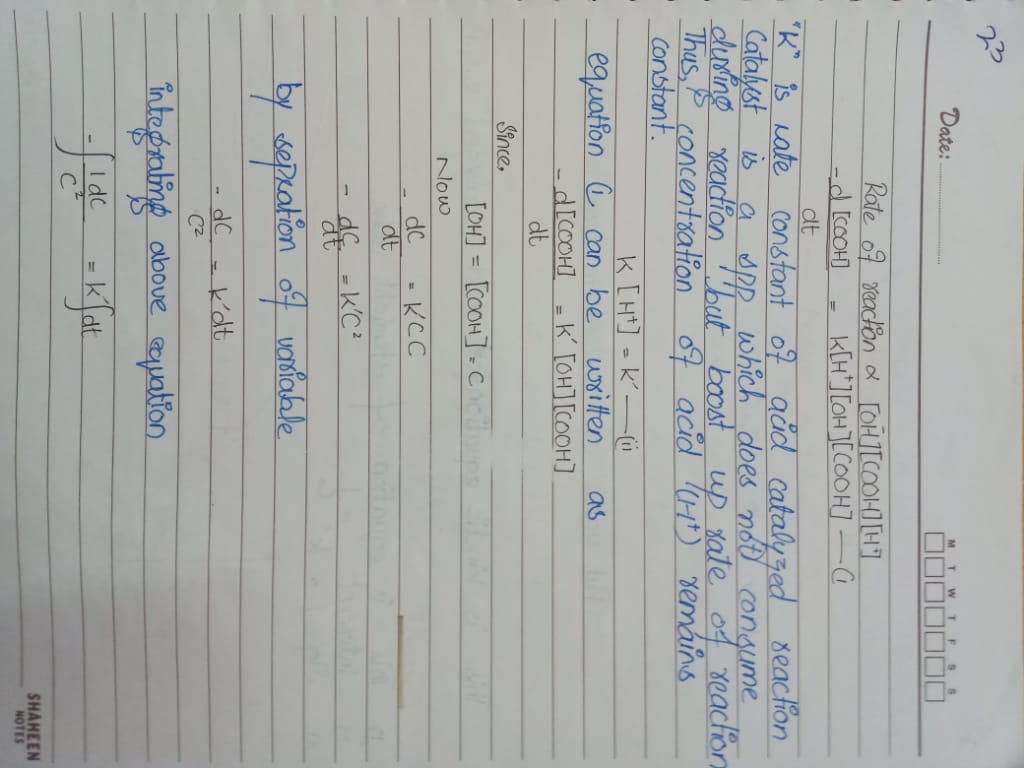 23
Date:
M T W T F S S
Rate of reaction ∝ [OH][COOH][H⁺]
-d[COOH]/dt = K[H⁺][OH][COOH] — (i
"K" is rate constant of acid catalyzed reaction
Catalyst is a spp which does not consume
during reaction but boost up rate of reaction
Thus, concentration of acid (H⁺) remains
constant.
K[H⁺] = K' — (ii
equation (i can be written as
-d[COOH]/dt = K' [OH][COOH]
Since,
[OH] = [COOH] = C
Now
- dC/dt = K'C C
- dC/dt = K'C²
by sepration of variable
- dC/C² = K'dt
integrating above equation
- ∫ 1 dC/C² = K'∫dt
SHAHEEN
NOTES